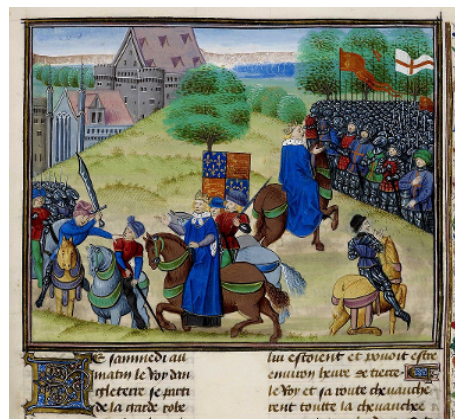 LE sammedi au
matin le Roy dan
gleterre se parti
de la garde robe
lui estoient et pouoit estre
enuiron heure de tierce.
le Roy et sa route cheuauche
rent toutte la